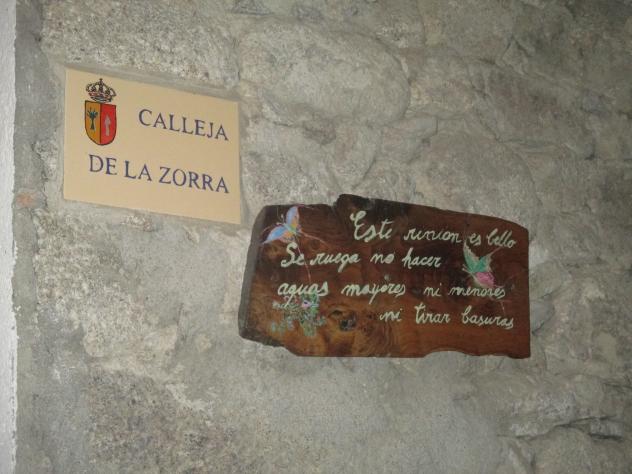 CALLEJA
DE LA ZORRA
Este rincon es bello
Se ruega no hacer
aguas mayores ni menores
ni tirar basuras